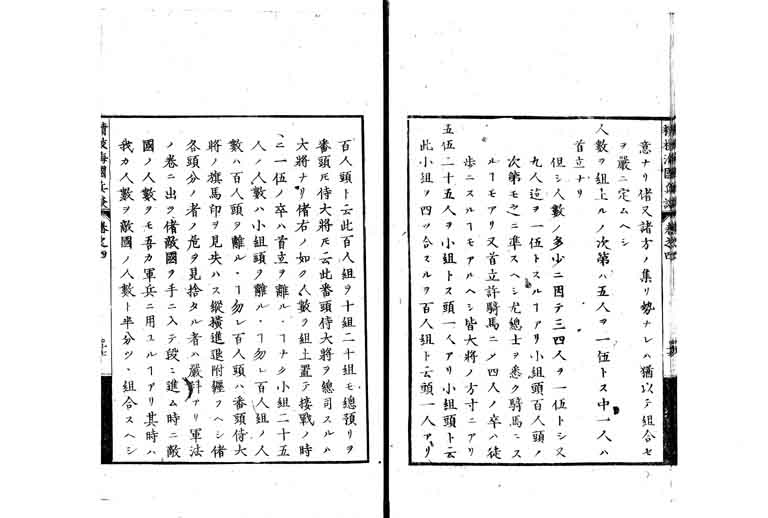 意ナリ偖又諸方ノ集リ勢ナレハ猶以テ組合セ
ヲ嚴ニ定ムヘシ
人數ヲ組上ルノ次第ハ五人ヲ一伍トス中一人ハ
首立ナリ
但シ人數ノ多少ニ因テ三四人ヲ一伍トシ又
九人迄ヲ一伍トスルヿアリ小組頭百人頭ノ
次第モ之ニ準スヘシ尤總士ヲ悉ク騎馬ニス
ルヿモアリ又首立許騎馬ニメ四人ノ卒ハ徒
歩ニスルヿモアルヘシ皆大將ノ方寸ニアリ
五伍二十五人ヲ小組トス頭一人アリ小組頭ト云
此小組ヲ四ツ合スルヲ百人組ト云頭一人アリ
百人頭ト云此百人組ヲ十組二十組モ總預リヲ
番頭𪜈侍大將𪜈云此番頭侍大將ヲ總司スルハ
大將ナリ偖右ノ如ク人數ヲ組土置テ接戰ノ時
ニ一伍ノ卒ハ首立ヲ離ルヽヿナク小組二十五
人ノ人數ハ小組頭ヲ離ルヽヿ勿レ百人組ノ人
數ハ百人頭ヲ離ルヽヿ勿レ百人頭ハ番頭侍大
將ノ旗馬印ヲ見失ハス縱横進退附纒フヘシ偖
各頭分ノ者ノ危ヲ見捨タル者ハ嚴科アリ軍法
ノ卷ニ出ヲ偖敵國ヲ手ニ入テ段々ニ進ム時ニ敵
國ノ人數ヲモ吾カ軍兵ニ用ユルヿアリ其時ハ
我カ人數ヲ敵國ノ人數ト半分ツヽ組合スヘシ
精校海國兵談 卷之四